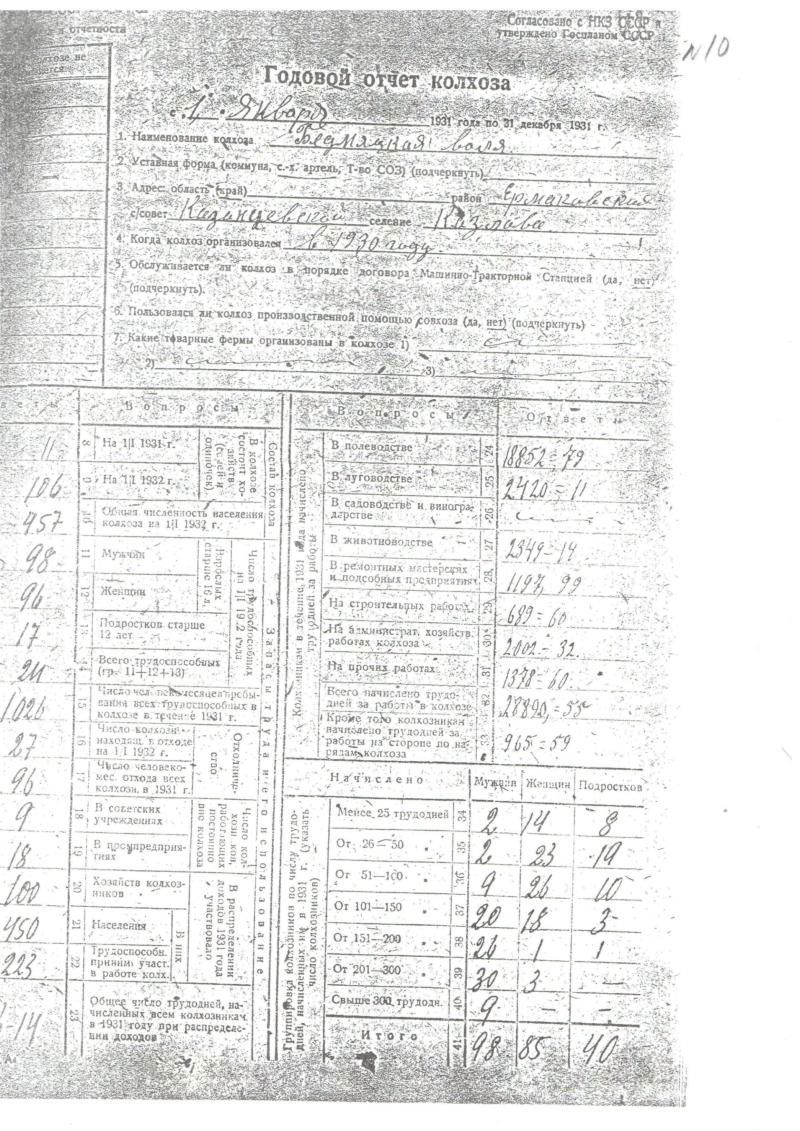 Согласовано с НКЗ СССР и
утверждено Госпланом СССР
N10
и отчетности
колхозе не
Годовой отчет колхоза
с 1 Января 1931 года по 31 декабря 1931 г.
1. Наименование колхоза Бедняцкая воля
2. Уставная форма (коммуна, с.-х. артель, Т-во СОЗ) (подчеркнуть)
3. Адрес: область (край) район Ермаковский
с/совет Казанцевской селение Казлова
4. Когда колхоз организовален в 1930 году
5. Обслуживается ли колхоз в порядке договора Машинно-Тракторной Станцией (да, нет)
(подчеркнуть).
6. Пользовался ли колхоз производственной помощью совхоза (да, нет) (подчеркнуть)
7. Какие товарные фермы организованы в колхозе 1)
2) 3)
Вопросы
Состав колхоза
В колхозе состоит хозяйств (семей и одиночек)
11 8 На 1|I 1931 г.
106 9 На 1|I 1932 г.
457 10 Общая численность населения колхоза на 1|I 1932 г.
Запасы труда и его использование
Число трудоспособных на 1|I 1932 года
Взрослых старше 16 л.
98 11 Мужчин
96 12 Женщин
17 13 Подростков старше 12 лет
14 Всего трудоспособных (гр. 11+12+13)
1026 15 Число человекомесяцев пребывания всех трудоспособных в колхозе в течение 1931 г.
Отходничество
27 16 Число колхозн. находящ. в отходе на 1|I 1932 г.
96 17 Число человеко-мес. отхода всех колхозн. в 1931 г.
Число колхозн. работающих постоянно вне колхоза
9 18 В советских учреждениях
18 19 В промпредприятиях
В распределении доходов 1931 года участвовало
100 20 Хозяйств колхозников
В них
450 21 Населения
223 22 Трудоспособн. приним. участ. в работе колх.
-14 23 Общее число трудодней, начисленных всем колхозникам в 1931 году при распределении доходов
Вопросы Ответы
Колхозникам в течение 1931 года начислено трудодней за работы
В полеводстве 24 18852=79
В луговодстве 25 2420=11
В садоводстве и виноградарстве 26
В животноводстве 27 2349-14
В ремонтных мастерских и подсобных предприятиях 28 1197,99
На строительных работах 29 689=60
На администрат. хозяйств. работах колхоза 30 2002-32
На прочих работах 31 1378=60
Всего начислено трудодней за работы в колхозе 32 28890,=55
Кроме того колхозникам начислено трудодней за работы на стороне по нарядам колхоза 33 965=59
Группировка колхозников по числу трудодней, начисленных им в 1931 г. (указать число колхозников)
Начислено Мужчин Женщин Подростков
Менее 25 трудодней 34 2 14 8
От 26—50 " 35 2 23 19
От 51—100 " 36 9 26 10
От 101—150 " 37 20 18 3
От 151—200 " 38 26 1 1
От 201—300 " 39 30 3 —
Свыше 300 трудодн. 40 9 — —
Итого 41 98 85 40